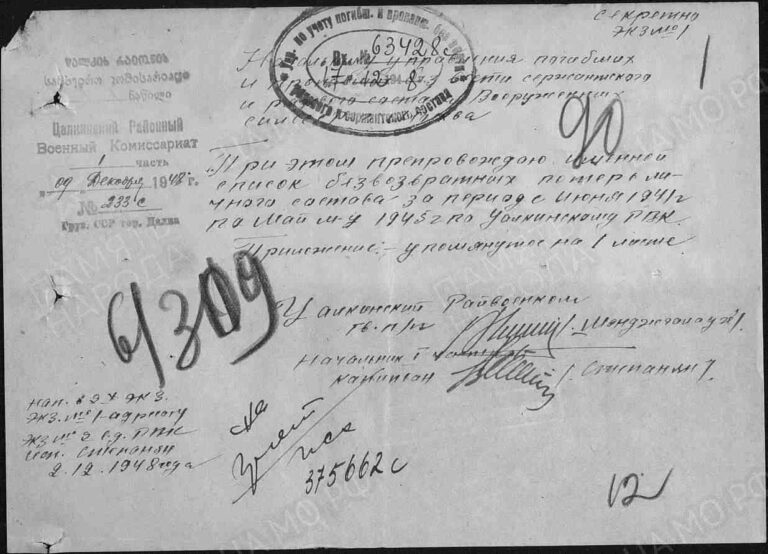 Секретно
Экз №1
1
Упр. по учету погибш. и пропавш. без вести
Вх. № 63428с
17 12 194 8
рядового и сержантского состава
Начальнику управления погибших
и пропавших без вести сержантского
и рядового состава Вооруженных
сил
90
Цалкинский Районный
Военный Комиссариат
1 часть
"09" Декабря 1948 г.
№ 233с
Груз. ССР гор. Цалка
При этом препровождаю именной
список безвозвратных потерь ли-
чного состава за период с Июня 1941г
по Май м-ц 1945г по Цалкинскому РВК.
Приложение:- упомянутое на 1 листе
6/309
Цалкинский Райвоенком
гв. п/п-к
Начальник 1 части
капитан /Степанян/.
нап. в 2х экз.
экз. №1 - адресату
экз №2 в д. РВК
исп. Степанян
2.12.1948 года
На
учет
375662с
12